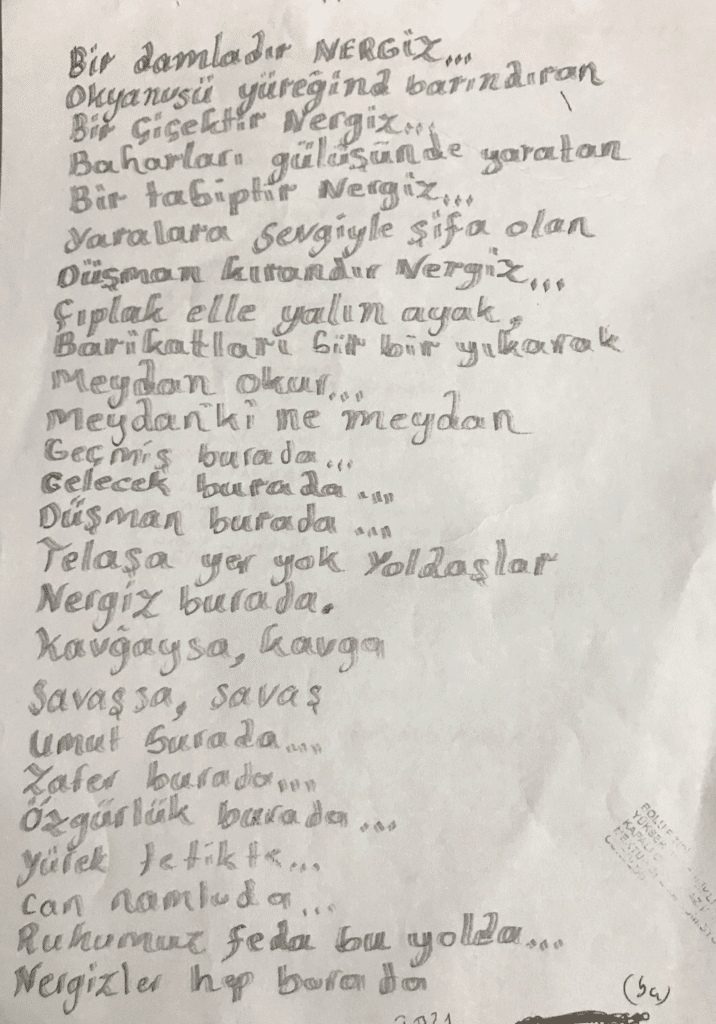 Bir damladır NERGİZ...
Okyanusü yüreğind barındıran
Bir Çiçektir Nergiz...
Baharları gülüşünde yaratan
Bir tabiptir Nergiz...
yaralara sevgiyle şifa olan
Düşman kırandır Nergiz...
Çıplak elle yalın ayak,
Barikatları bir bir yıkarak
Meydan okur...
Meydan'ki ne meydan
Geçmiş burada...
Gelecek burada...
Düşman burada...
Telaşa yer yok Yoldaşlar
Nergiz burada.
Kavğaysa, kavga
Savaşsa, savaş
Umut burada...
Zafer burada...
Özgürlük burada...
Yürek tetikte...
can namluda...
Ruhumuz feda bu yolda...
Nergizler hep burada
(ba)
2021
YÜKSEK